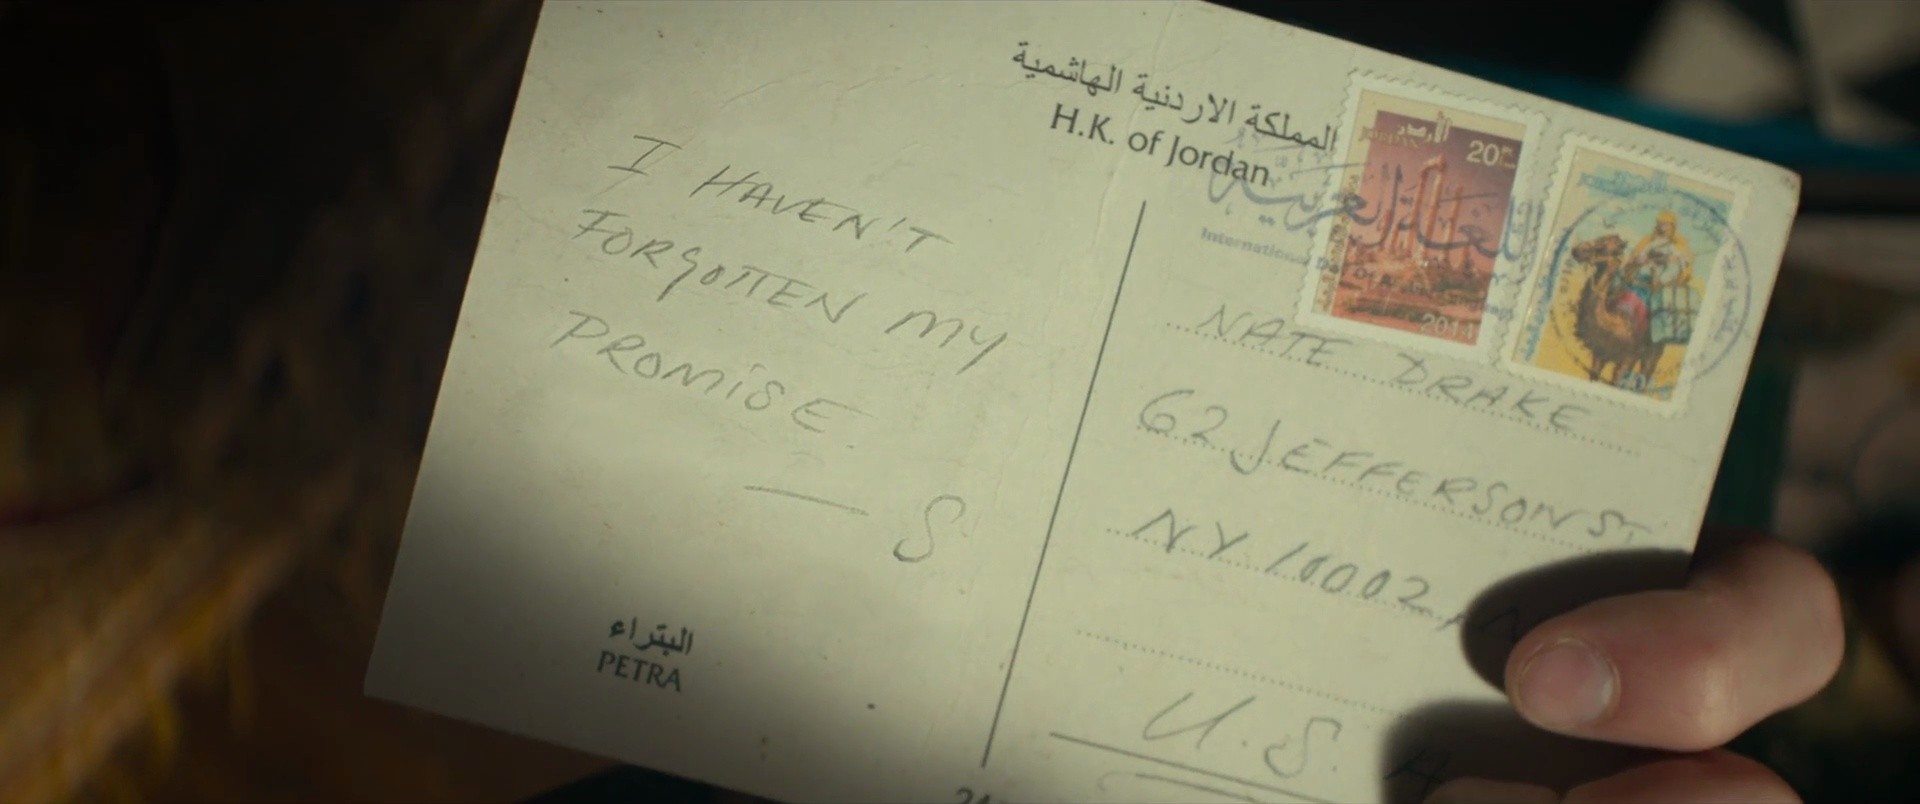 المملكة الاردنية الهاشمية
H.K. of Jordan
I HAVEN'T
FORGOTTEN MY
PROMISE.
— S
البتراء
PETRA
الأردن
JORDAN
20
2014
للغة العربية
International Day Of
NATE DRAKE
62 JEFFERSON ST
NY 10002
U.S.